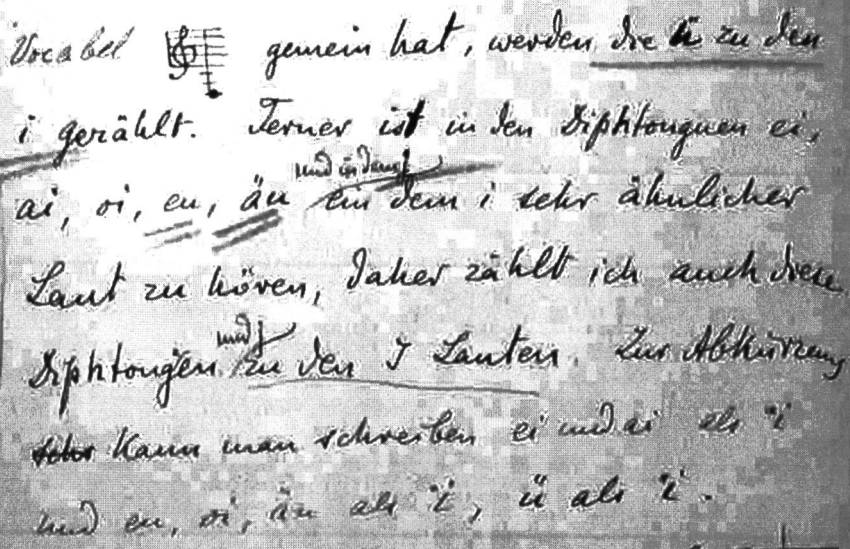 Vocabel gemein hat, werden die ü zu den
i gezählt. Ferner ist in den Diphtonguen ei,
und in dem
ai, oi, eu, äu ein dem i sehr ähnlicher
Laut zu hören, daher zählt ich auch diese
und
Diphtongen zu den I Lauten. Zur Abkürzung
kann man schreiben ei und ai als ï
und eu, oi, äu als ï, ü als ï.